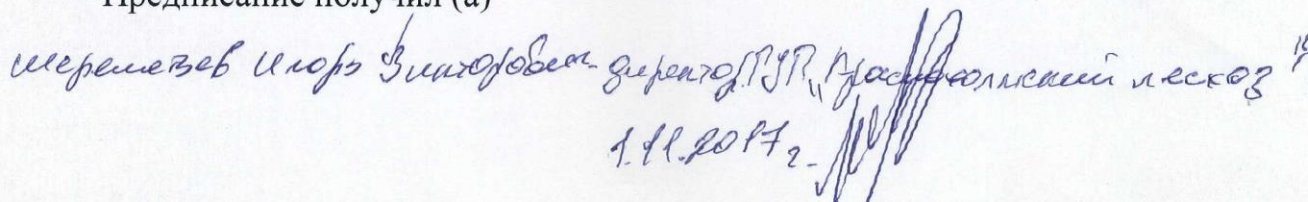 Предписание получил (а)
Шереметьев Игорь Викторович - директор ГУП "Краснохолмский лесхоз"
1.11.2017 г.